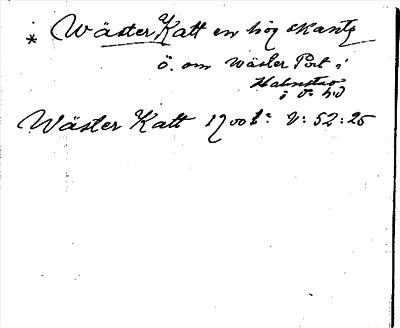 * Wäster Katt en hög skantz
ö. om Wäster Port i
Halmstad
i
Wäster Katt 1700t: V: 52: 25